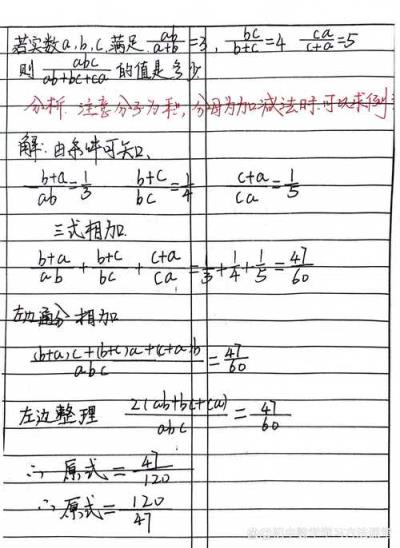 若实数a,b,c,满足 ab/(a+b)=3, bc/(b+c)=4 ca/(c+a)=5
则 abc/(ab+bc+ca) 的值是多少
分析. 注意分子为积, 分母为加减法时.可以求倒
解: 由条件可知
(b+a)/ab=1/3 (b+c)/bc=1/4 (c+a)/ca=1/5
三式相加
(b+a)/ab+(b+c)/bc+(c+a)/ca=1/3+1/4+1/5=47/60
左边通分相加
((b+a)c+(b+c)a+(c+a)b)/abc=47/60
左边整理 2(ab+bc+ca)/abc=47/60
∴原式=47/120
∴原式=120/47